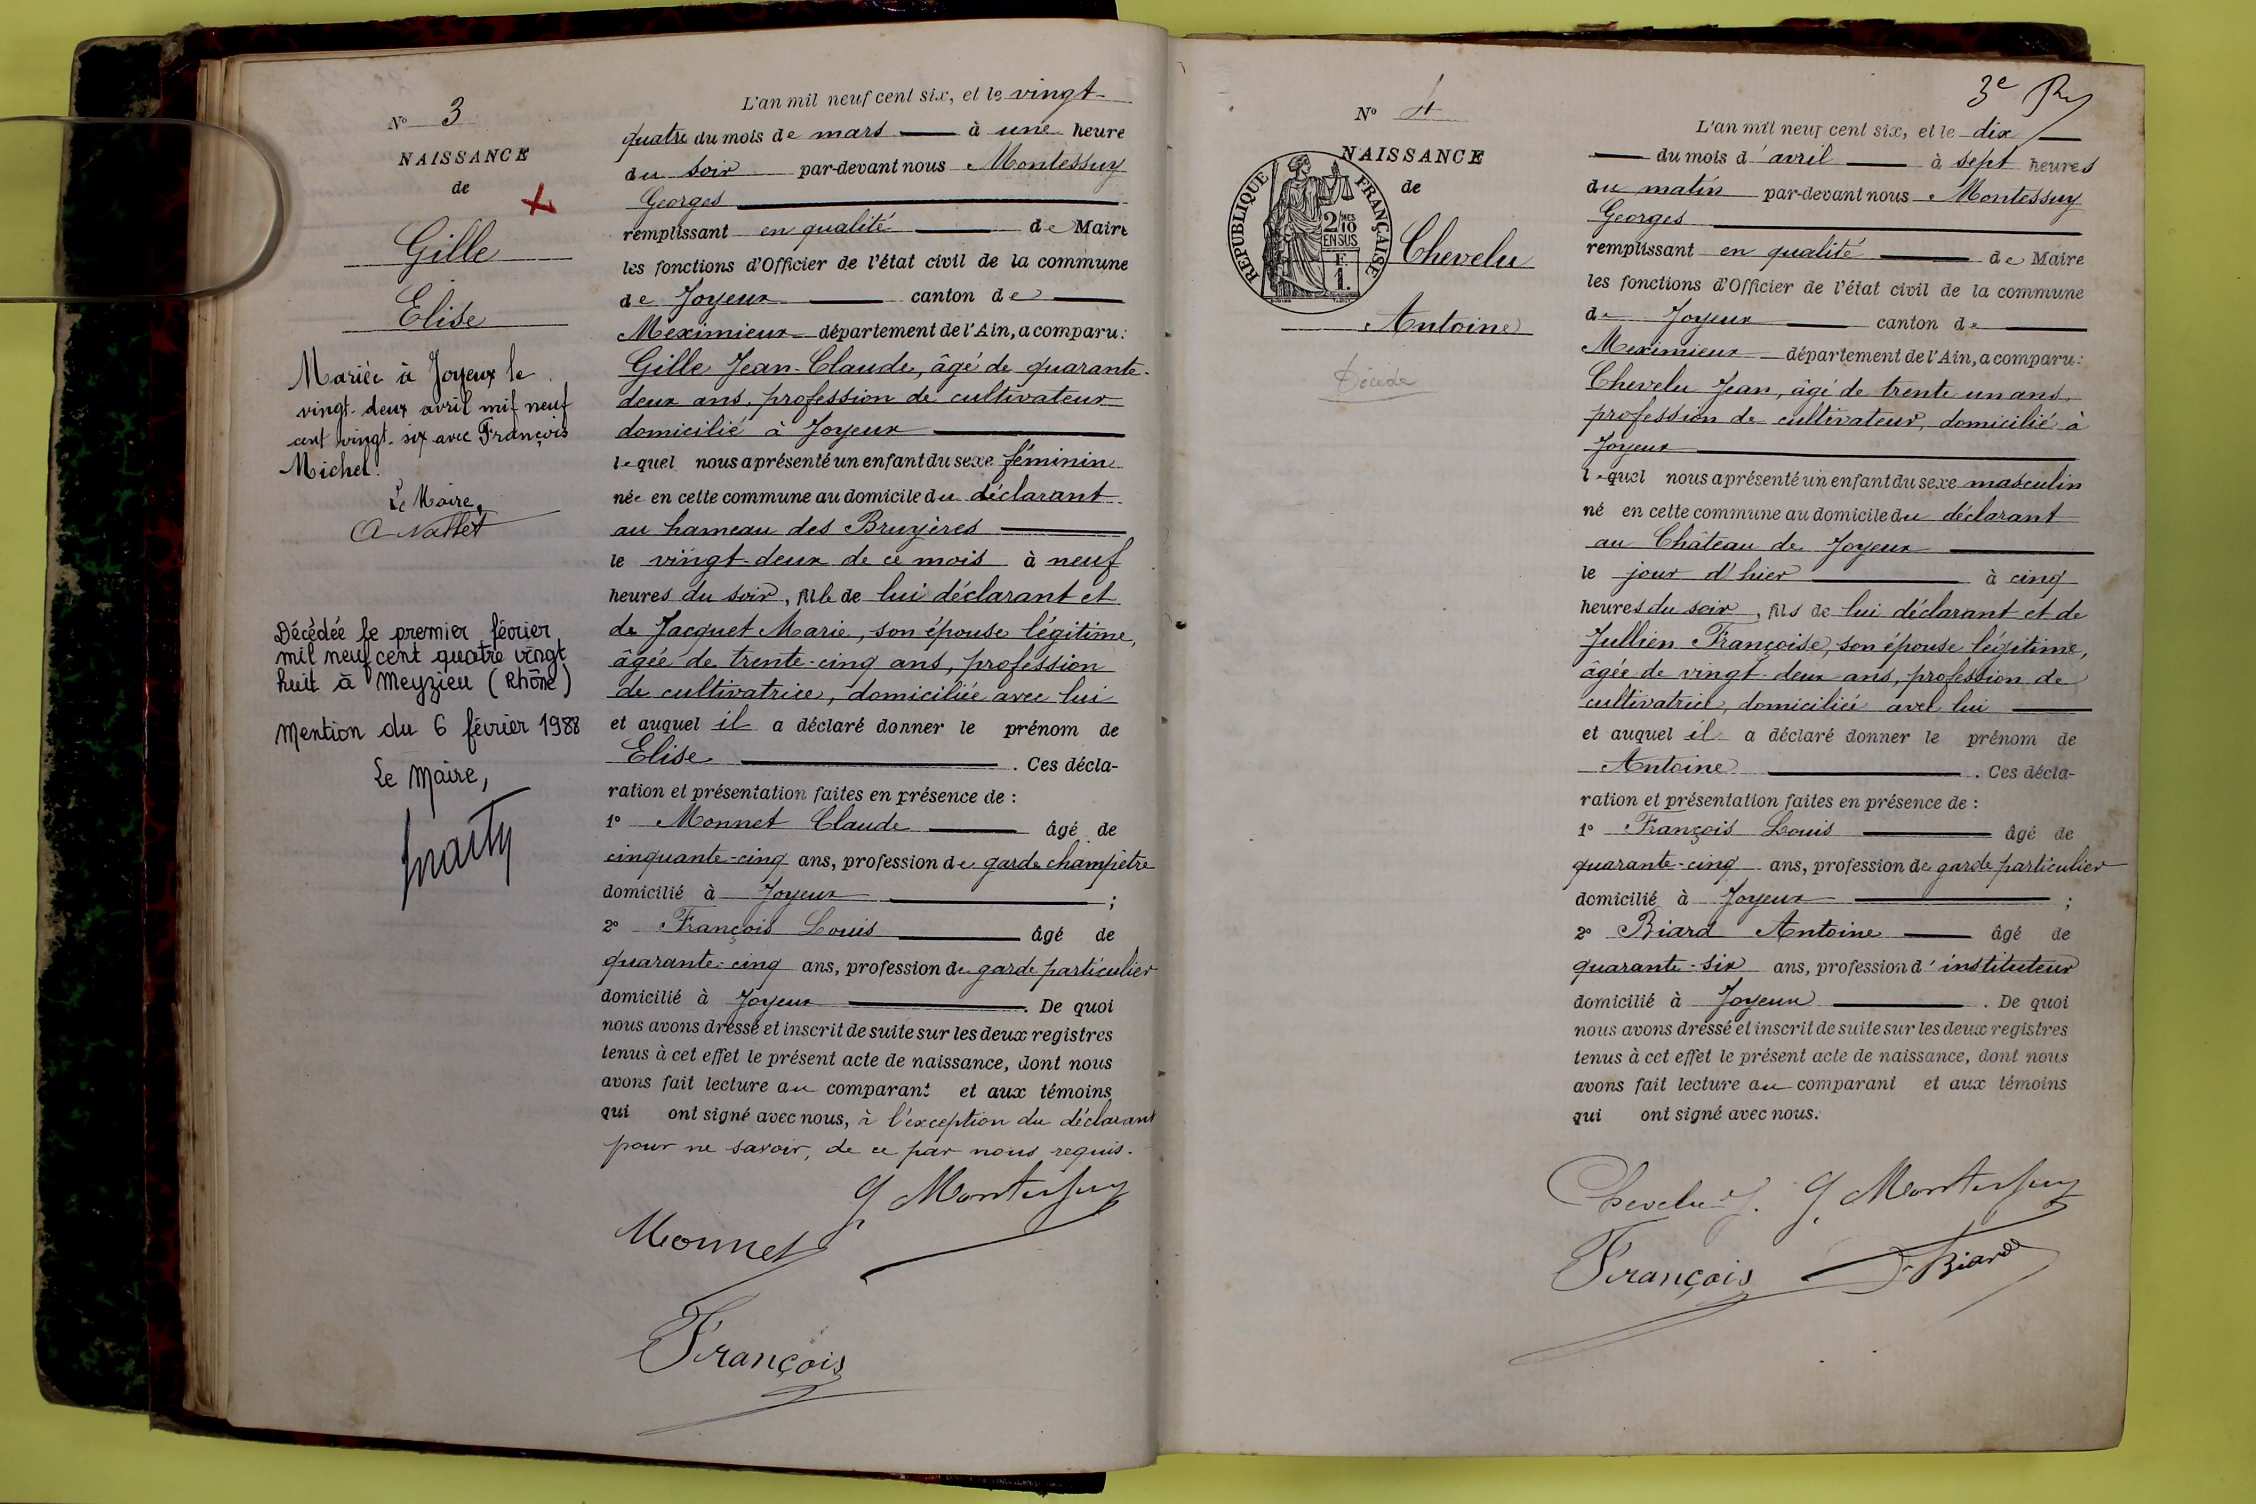 N° 3
NAISSANCE
de
Gille
Elise
Mariée à Joyeux le
vingt-deux avril mil neuf
cent vingt-six avec François
Michel.
Le Maire,
Décédée le premier février
mil neuf cent quatre vingt
huit à Meyzieu (Rhône)
Mention du 6 février 1988
Le Maire,
L'an mil neuf cent six, et le vingt-
quatre du mois de mars à une heure
du soir par-devant nous Montessuy
Georges
remplissant en qualité de Maire
les fonctions d'Officier de l'état civil de la commune
de Joyeux canton de
Meximieux département de l'Ain, a comparu:
Gille Jean-Claude, âgé de quarante-
deux ans, profession de cultivateur
domicilié à Joyeux
lequel nous a présenté un enfant du sexe féminin
née en cette commune au domicile du déclarant
au hameau des Bruyères
le vingt-deux de ce mois à neuf
heures du soir, fille de lui déclarant et
de Jacquet Marie, son épouse légitime,
âgée de trente-cinq ans, profession
de cultivatrice, domiciliée avec lui
et auquel il a déclaré donner le prénom de
Elise. Ces décla-
ration et présentation faites en présence de :
1° Monnet Claude âgé de
cinquante-cinq ans, profession de garde champêtre
domicilié à Joyeux ;
2° François Louis âgé de
quarante-cinq ans, profession de garde particulier
domicilié à Joyeux. De quoi
nous avons dressé et inscrit de suite sur les deux registres
tenus à cet effet le présent acte de naissance, dont nous
avons fait lecture au comparant et aux témoins
qui ont signé avec nous, à l'exception du déclarant
pour ne savoir, de ce par nous requis.
G Montessuy
Monnet
François
3e
N° 4
NAISSANCE
de
RÉPUBLIQUE FRANÇAISE
2/10 MES
EN SUS
F.
1.
Chevelu
Antoine
Décédé
L'an mil neuf cent six, et le dix
du mois d'avril à sept heures
du matin par-devant nous Montessuy
Georges
remplissant en qualité de Maire
les fonctions d'Officier de l'état civil de la commune
de Joyeux canton de
Meximieux département de l'Ain, a comparu:
Chevelu Jean, âgé de trente un ans,
profession de cultivateur, domicilié à
Joyeux
lequel nous a présenté un enfant du sexe masculin
né en cette commune au domicile du déclarant
au Château de Joyeux
le jour d'hier à cinq
heures du soir, fils de lui déclarant et de
Jullien Françoise, son épouse légitime,
âgée de vingt-deux ans, profession de
cultivatrice, domiciliée avec lui
et auquel il a déclaré donner le prénom de
Antoine. Ces décla-
ration et présentation faites en présence de :
1° François Louis âgé de
quarante-cinq ans, profession de garde particulier
domicilié à Joyeux ;
2° Biard Antoine âgé de
quarante-six ans, profession d'instituteur
domicilié à Joyeux. De quoi
nous avons dressé et inscrit de suite sur les deux registres
tenus à cet effet le présent acte de naissance, dont nous
avons fait lecture au comparant et aux témoins
qui ont signé avec nous.
Chevelu J. G Montessuy
François Biard